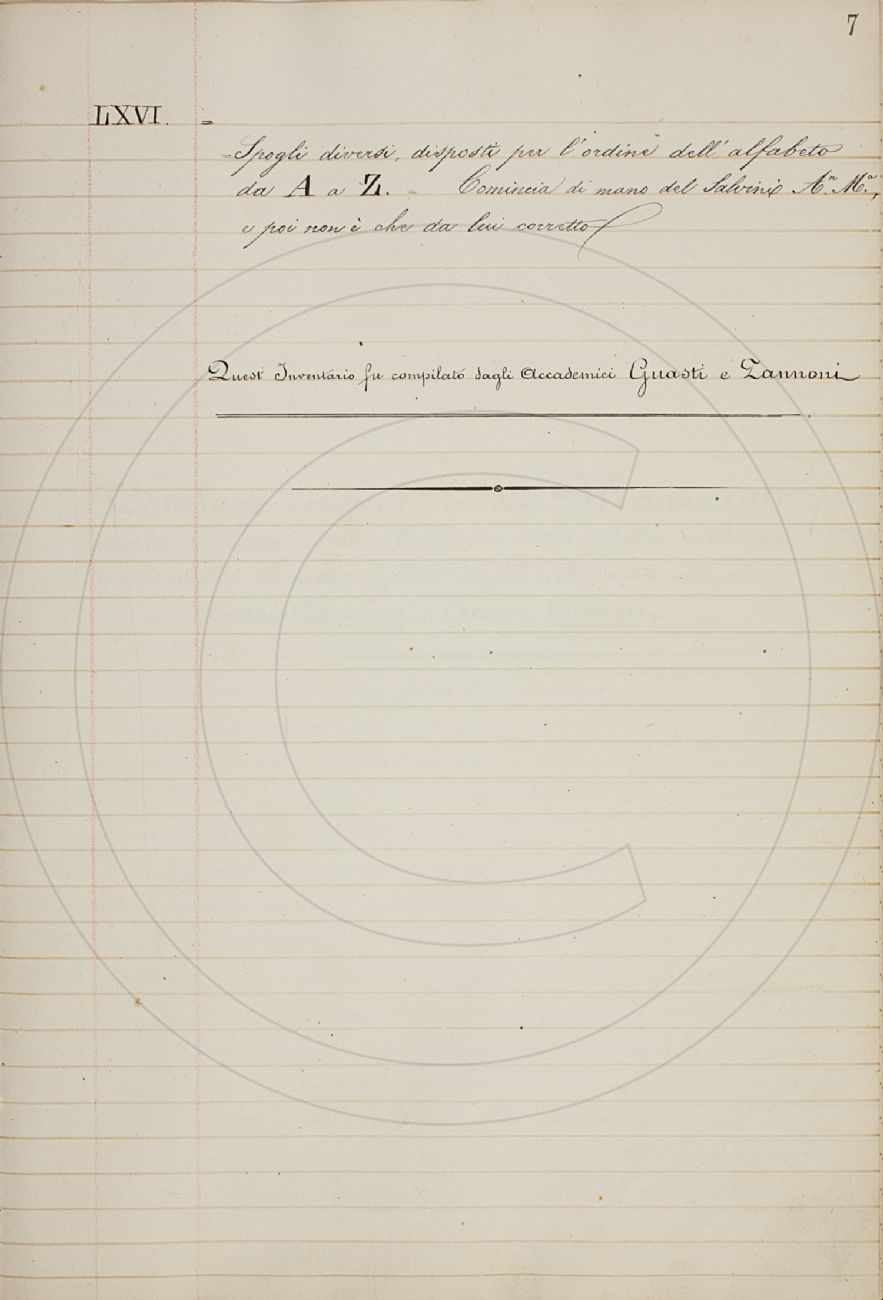 7
LXVI. =
=Spogli diversi, disposti per l'ordine dell'alfabeto
da A a Z. = Comincia di mano del Salvini Aⁿ. Mᵃ.,
e poi non è che da lui corretto
Quest Inventario fu compilato dagli Accademici Guasti e Zannoni